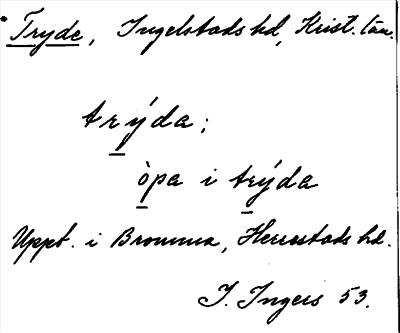 Tryde, Ingelstads hd, Krist. län.
trýda;
òpa i trýda
Uppt. i Bromma, Herrestads hd.
I. Ingers 53.